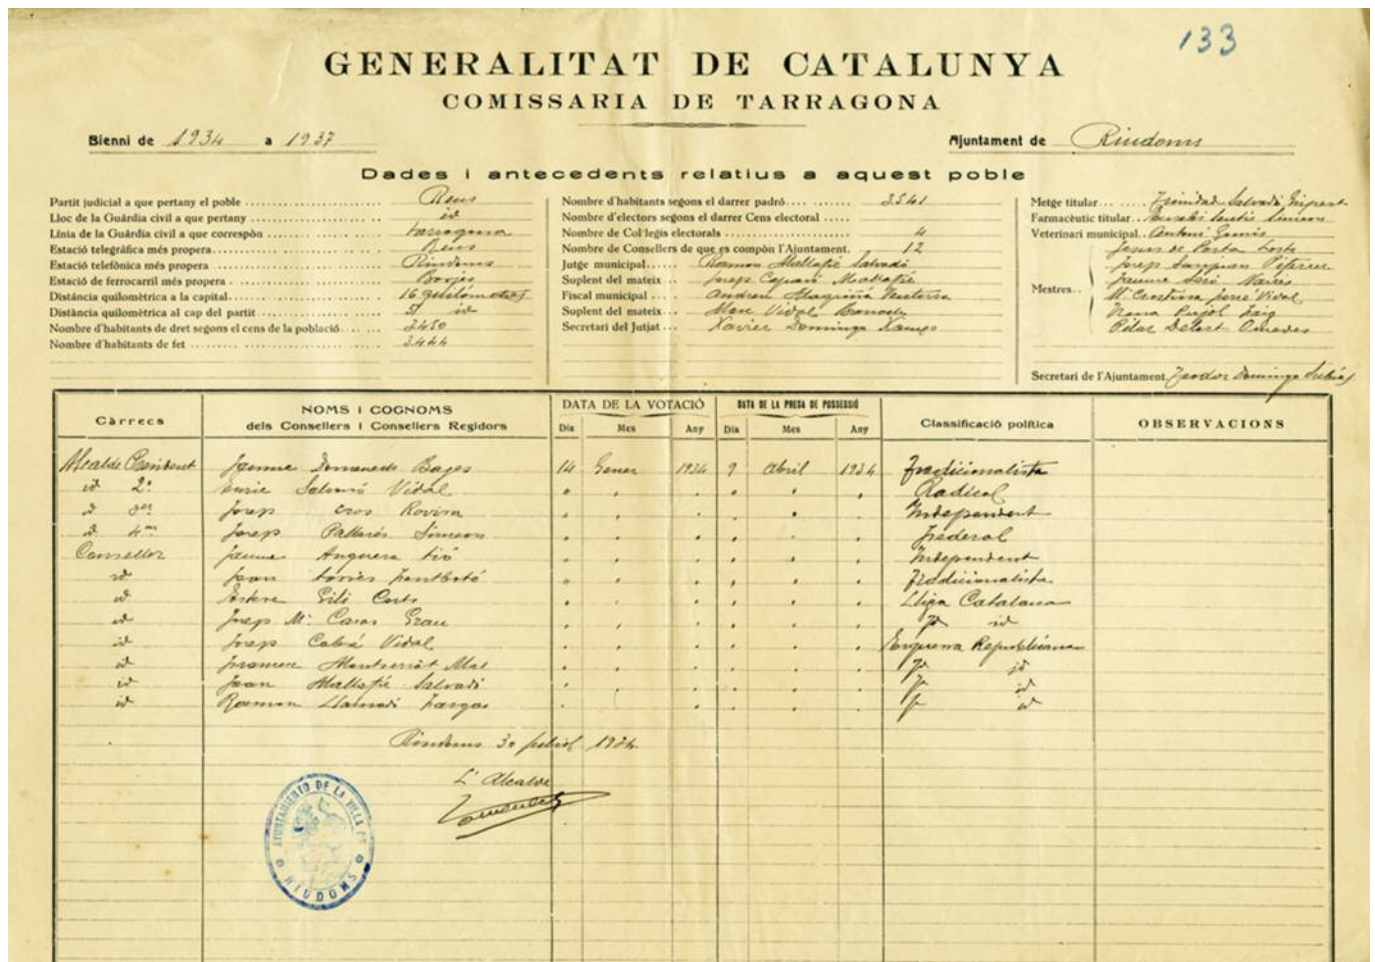 133
GENERALITAT DE CATALUNYA
COMISSARIA DE TARRAGONA
Bienni de 1934 a 1937
Ajuntament de Riudoms
Dades i antecedents relatius a aquest poble
Partit judicial a que pertany el poble Reus
Lloc de la Guàrdia civil a que pertany id
Línia de la Guàrdia civil a que correspòn Tarragona
Estació telegràfica més propera Reus
Estació telefònica més propera Riudoms
Estació de ferrocarril més propera Borjes
Distància quilomètrica a la capital 16 quilómetres
Distància quilomètrica al cap del partit 5 id
Nombre d'habitants de dret segons el cens de la població 3450
Nombre d'habitants de fet 3444
Nombre d'habitants segons el darrer padró 3541
Nombre d'electors segons el darrer Cens electoral
Nombre de Col·legis electorals 4
Nombre de Consellers de que es compòn l'Ajuntament. 12
Jutge municipal Ramon Mallafré Salvadó
Suplent del mateix Josep Mallafré
Fiscal municipal Andreu
Suplent del mateix Marc Vidal
Secretari del Jutjat Xavier Domingo
Metge titular Trinidad Salvadó Gispert
Farmacèutic titular Simeon
Veterinari municipal Antoni
Jesus de Porta
Josep Sanjuan
Mestres Jaume
Mª Cristina Ferré Vidal
Pujol Puig
Pilar Delort Omedes
Secretari de l'Ajuntament Teodor Domingo
Càrrecs
NOMS I COGNOMS
dels Consellers i Consellers Regidors
DATA DE LA VOTACIÓ
Dia Mes Any
DATA DE LA PRESA DE POSSESSIÓ
Dia Mes Any
Classificació política
OBSERVACIONS
Alcalde President Jaume Domenech Bages 14 Gener 1934 9 Abril 1934 Tradicionalista
id 2º Enric Salvadó Vidal " " " " " " Radical
id 3er Josep Cros Rovira " " " " " " Independent
id 4rt Josep Pallarès Simeon " " " " " " Federal
Conseller Jaume Anguera " " " " " " Independent
id Joan Torres Fontboté " " " " " " Tradicionalista
id Esteve Gili " " " " " " Lliga Catalana
id Josep Mª Grau " " " " " " Id id
id Josep Cabré Vidal " " " " " " Esquerra Republicana
id Montserrat Mas " " " " " " Id id
id Joan Mallafré Salvadó " " " " " " Id id
id Ramon " " " " " " Id id
Riudoms 30 juliol 1934
L'Alcalde
Domenech
AYUNTAMIENTO DE LA VILLA DE
RIUDOMS